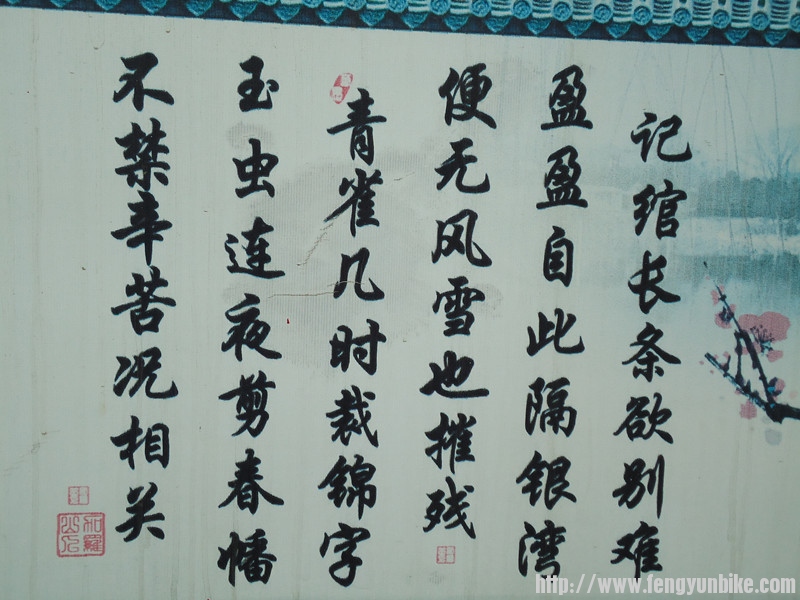 记绾长条欲别难
盈盈自此隔银湾
便无风雪也摧残
青雀几时裁锦字
玉虫连夜剪春幡
不禁辛苦况相关
http://www.fengyunbike.com